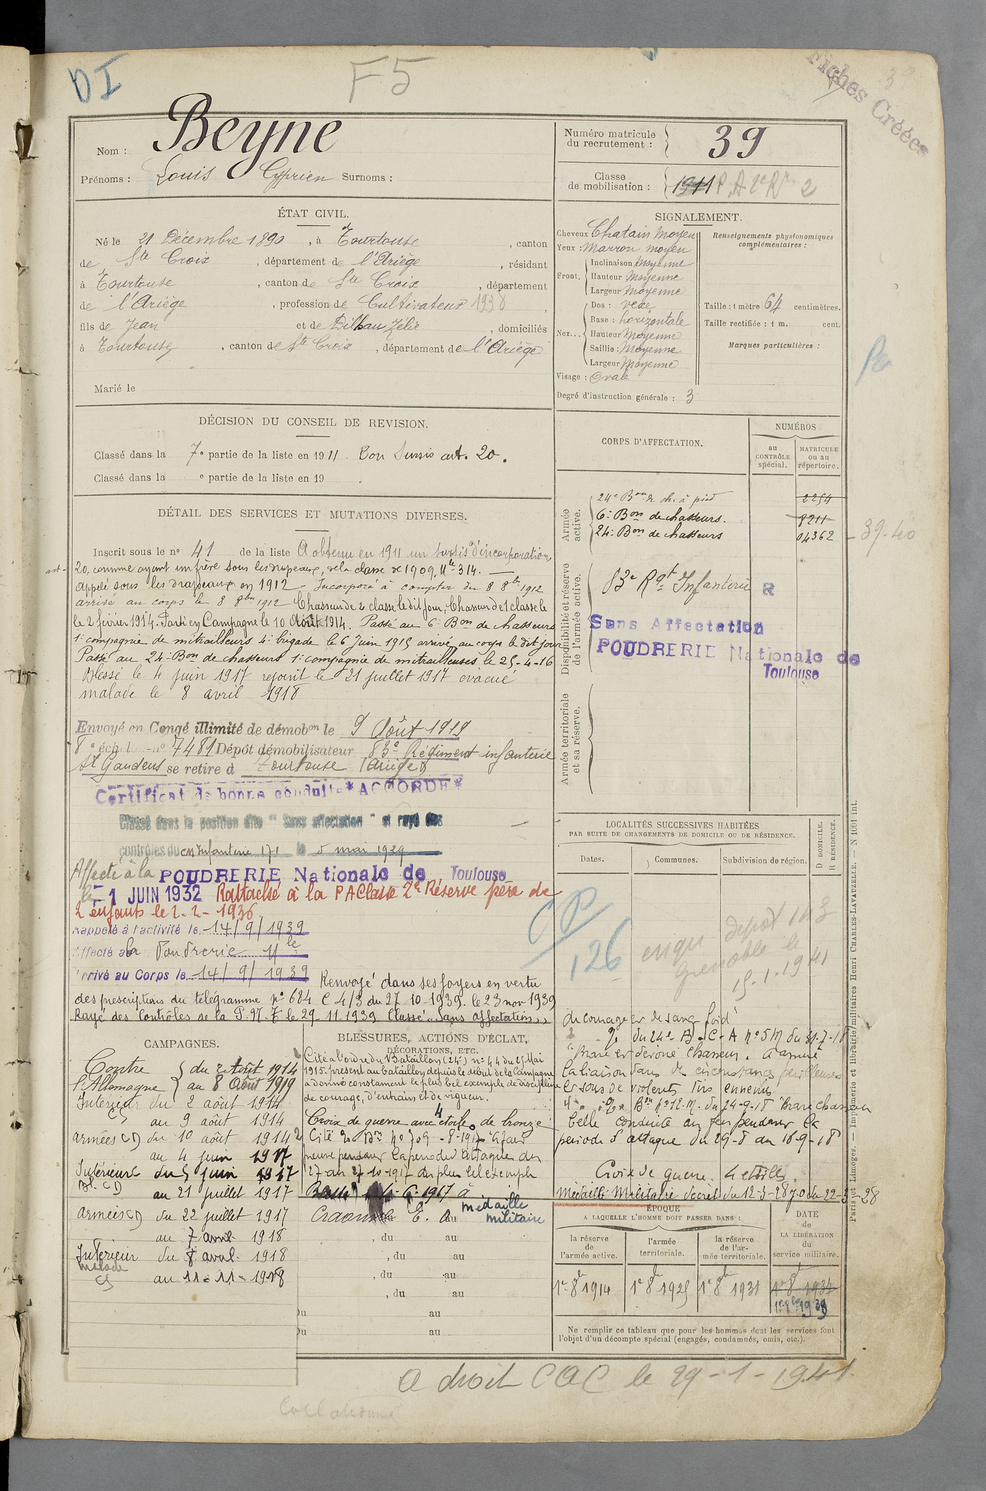 DI
F5
Fiches Créées
Nom : Beyne
Prénoms : Louis Cyprien Surnoms :
Numéro matricule du recrutement : 39
Classe de mobilisation : 1911 P.A 2e Rve 2
ÉTAT CIVIL.
Né le 21 Décembre 1890, à Tourtouse, canton
de Ste Croix, département de l'Ariège, résidant
à Tourtouse, canton de Ste Croix, département
de l'Ariège, profession de Cultivateur 1938
fils de Jean et de Félix, domiciliés
à Tourtouse, canton de Ste Croix, département de l'Ariège
Marié le
SIGNALEMENT.
Cheveux Chatain moyen
Yeux : Marron moyen
Front. Inclinaison Moyenne
Hauteur Moyenne
Largeur Moyenne
Nez... Dos : vexe
Base : horizontale
Hauteur Moyenne
Saillie : Moyenne
Largeur Moyenne
Visage : Ovale
Degré d'instruction générale : 3
Renseignements physionomiques complémentaires :
Taille : 1 mètre 64 centimètres.
Taille rectifiée : 1 m. cent.
Marques particulières :
DÉCISION DU CONSEIL DE REVISION.
Classé dans la 7e partie de la liste en 1911 Bon Sursis art. 20.
Classé dans la e partie de la liste en 19
CORPS D'AFFECTATION.
NUMÉROS
au CONTRÔLE spécial.
MATRICULE ou au répertoire.
Armée active.
24e Bon de ch. à pied 2254
6e Bon de chasseurs. 8211
24e Bon de chasseurs 04362
39-40
Disponibilité et réserve de l'armée active.
83e Rgt Infanterie R
Sans Affectation
POUDRERIE Nationale de
Toulouse
Armée territoriale et sa réserve.
DÉTAIL DES SERVICES ET MUTATIONS DIVERSES.
Inscrit sous le no 41 de la liste A obtenu en 1911 un sursis d'incorporation
art. 20, comme ayant un frère sous les drapeaux, de la classe de 1909, Mle 314.
Appelé sous les drapeaux en 1912 Incorporé à compter du 8 8bre 1912
arrivé au corps le 8 8bre 1912 Chasseur de 2e classe le dit jour, Chasseur de 1e classe le
le 2 février 1914. Parti en Campagne le 10 Août 1914. Passé au 6e Bon de chasseurs
1e compagnie de mitrailleurs 4e brigade le 6 Juin 1915 arrivé au corps le dit jour
Passé au 24e Bon de chasseurs 1e compagnie de mitrailleuses le 25-4-16
Blessé le 4 juin 1917 rejoint le 21 juillet 1917 évacué
malade le 8 avril 1918
Envoyé en Congé illimité de démobon le 9 Août 1919
8e échelon no 7481 Dépôt démobilisateur 83e Régiment infanterie
St Gaudens se retire à Tourtouse (Ariège)
Certificat de bonne conduite "ACCORDÉ"
Classé dans la position dite "Sans affectation" et rayé des
contrôles du CM Infanterie 171 le 5 mai 1929
Affecté à la POUDRERIE Nationale de Toulouse
le 1 JUIN 1932 Rattaché à la PA Classe 2e Réserve père de
2 enfants le 2-2-1936
Rappelé à l'activité le 14/9/1939
Affecté à la Poudrerie Nle
Arrivé au Corps le 14/9/1939 Renvoyé dans ses foyers en vertu
des prescriptions du télégramme no 684 C 4/3 du 27.10.1939. le 23 nov 1939
Rayé des Contrôles de la P.N.T le 29.11.1939 Classé "Sans affectation"
LOCALITÉS SUCCESSIVES HABITÉES
PAR SUITE DE CHANGEMENTS DE DOMICILE OU DE RÉSIDENCE.
Dates.
Communes.
Subdivision de région.
D DOMICILE. R RÉSIDENCE.
CP 126
dépôt 143
Grenoble le
15.1.1941
CAMPAGNES.
Contre l'Allemagne du 2 Août 1914
au 8 Août 1919
Intérieur du 2 août 1914
au 9 août 1914
armées CD du 10 août 1914
au 4 juin 1917
Intérieur du 5 juin 1917
Bl. CD au 21 juillet 1917
Armées CD du 22 juillet 1917
au 7 avril 1918
Intérieur du 8 avril 1918
malade CS au 11-11-1918
BLESSURES, ACTIONS D'ÉCLAT,
DÉCORATIONS, ETC.
Cité à l'ordre du Bataillon (24e) no 44 du 25 Mai
1915: présent au bataillon depuis le début de la Campagne
a donné constamment le plus bel exemple de discipline
de courage, d'entrain et de vigueur.
Croix de guerre avec 4 étoiles de bronze
Cité
preuve pendant la période d'attaques du
27 au 27-10-1917 du plus bel exemple
Blessé le 4-6-1917 à
Craonne
médaille militaire
, du au
, du au
, du au
, du au
Du au
Du au
de courage et de sang froid
du 24e B.C.A no 5M du 31-7-18
"Brave et dévoué Chasseur. A assuré
la liaison dans des circonstances périlleuses
et sous de violents tirs ennemis
Bon no 12.M. du 24-9-18 "Brave chasseur
belle conduite au feu pendant la
période d'attaque du 29-8 au 16-9-18
Croix de guerre 4 étoiles
Médaille Militaire Décret du 12-3-28
ÉPOQUE
A LAQUELLE L'HOMME DOIT PASSER DANS :
la réserve de l'armée active.
l'armée territoriale.
la réserve de l'armée territoriale.
DATE de LA LIBÉRATION du service militaire.
1er 8bre 1914
1er 8bre 1925
1er 8bre 1931
1er 8bre 1934
1er 8bre 1939
Ne remplir ce tableau que pour les hommes dont les services font
l'objet d'un décompte spécial (engagés, condamnés, omis, etc.).
Paris et Limoges. — Imprimerie et librairie militaires Henri CHARLES-LAVAUZELLE. — N 1001 int.
A droit CAC le 29-1-1941.